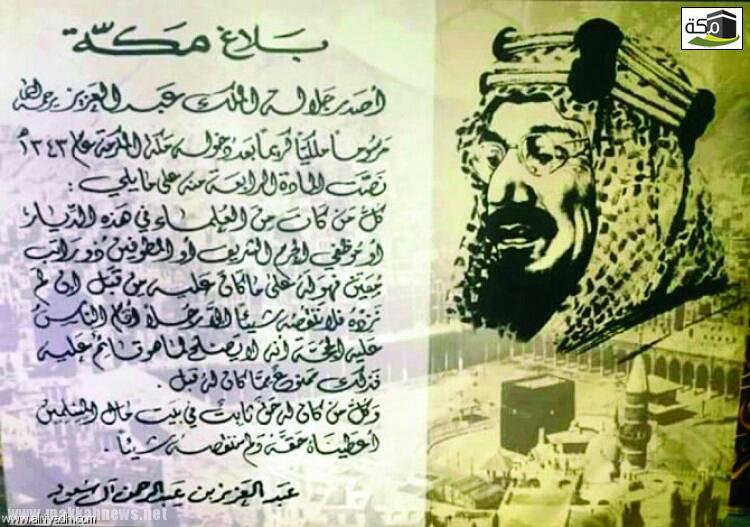 بلاغ مكة
مكة
أصدر جلالة الملك عبد العزيز يرحمه الله
مرسوماً ملكياً كريماً بعد دخوله مكة المكرمة عام ١٣٤٣هـ
نصت المادة الرابعة منه على مايلي :
كل من كان من العلماء في هذه الديار
أو موظفي الحرم الشريف أو المطوفين ذو راتب
معين فهو له على ما كان عليه من قبل ان لم
نزده فلا ننقصه شيئاً الا رجلاً أقام الناس
عليه الحجة أنه لا يصلح لما هو قائم عليه
فذلك ممنوع مما كان له قبل .
وكل من كان له حق ثابت في بيت مال المسلمين
أعطيناه حقه ولم ننقصه شيئاً .
عبد العزيز بن عبد الرحمن آل سعود
www.makkahnews.net
www.alriyadh.com